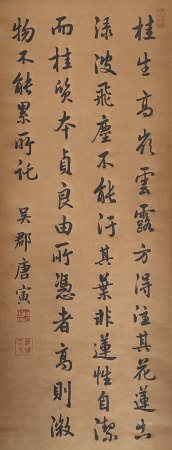 桂生高嶺雲露方得注其花蓮出
淥波飛塵不能汙其葉非蓮性自潔
而桂質本貞良由所憑者高則微
物不能累所託 吳郡唐寅